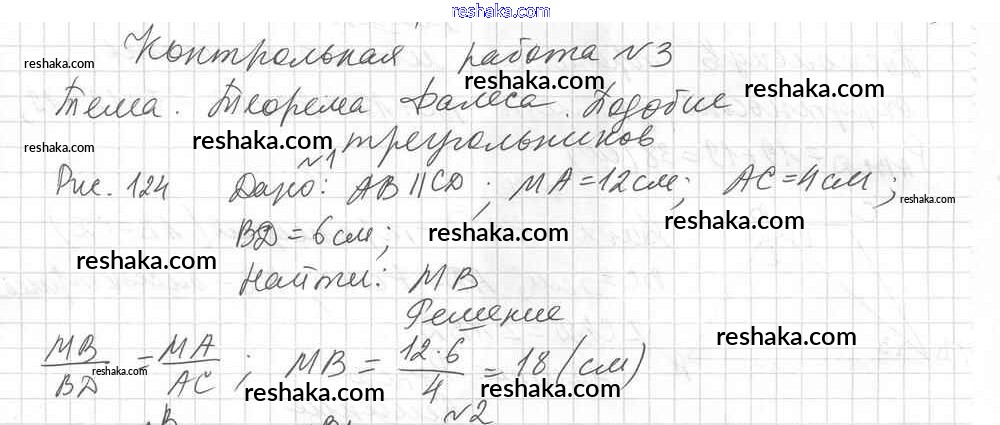 reshaka.com
Контрольная работа №3
reshaka.com
reshaka.com
reshaka.com
Тема. Теорема Фалеса. Подобие
треугольников
reshaka.com
reshaka.com
№1
Рис. 124 Дано: AB || CD ; MA = 12 см; AC = 4 см ;
reshaka.com
reshaka.com
BD = 6 см;
reshaka.com
reshaka.com
Найти: MB
Решение
reshaka.com
MB/BD = MA/AC ; MB = 12·6/4 = 18 (см)
reshaka.com
reshaka.com
reshaka.com
№2